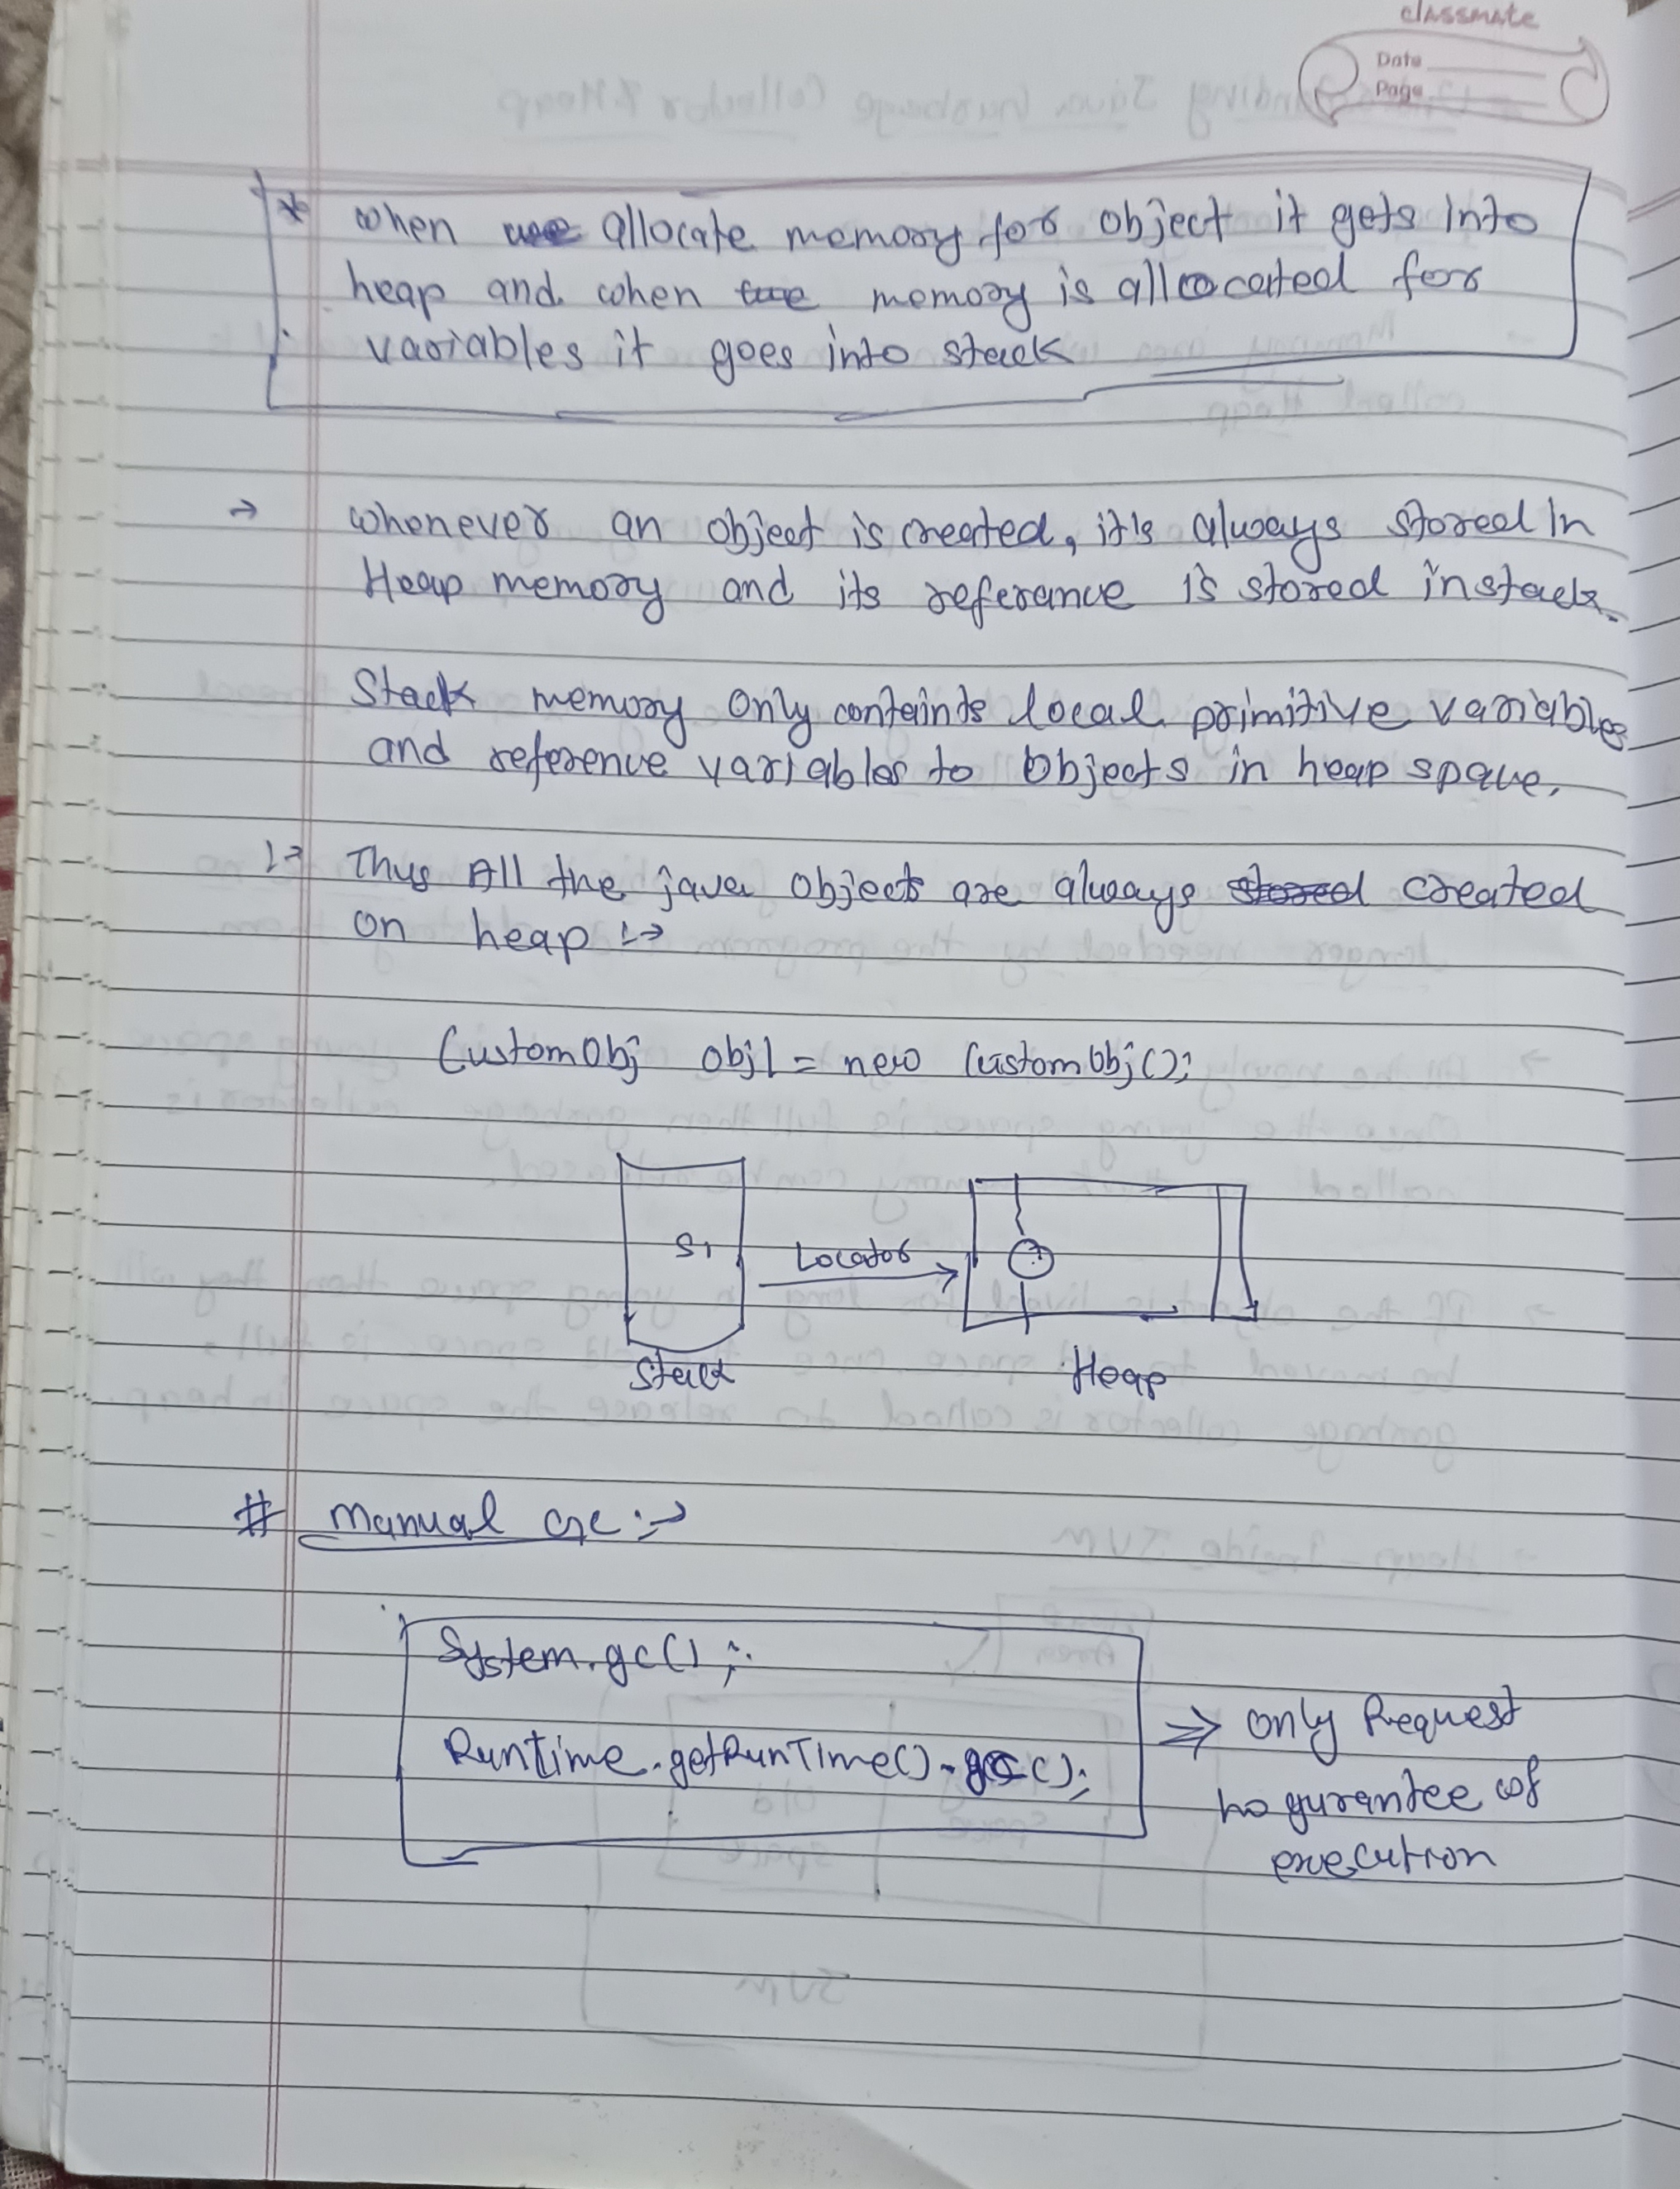 classmate
Date
Page
* When we allocate memory for object it gets into
heap and when memory is allocated for
variables it goes into stack
→ Whenever an object is created, it's always stored In
Heap memory and its referance is stored in stack.
Stack memory Only containts local primitive variables
and reference variables to Objects in heap space.
:→ Thus All the java objects are always stored created
on heap :→
CustomObj obj1 = new CustomObj();
S1
Locator
Stack
Heap
# Manual GC :→
System.gc();
Runtime.getRunTime().gc();
⇒ only Request
no gurantee of
execution